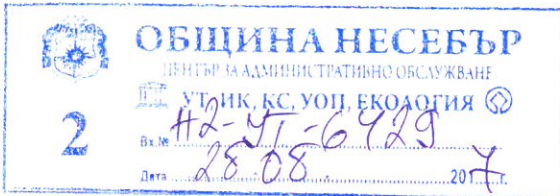 ОБЩИНА НЕСЕБЪР
ЦЕНТЪР ЗА АДМИНИСТРАТИВНО ОБСЛУЖВАНЕ
УТ, ИК, КС, УОП, ЕКОЛОГИЯ
2
Вх.№ Н2-УТ-6429
Дата 28.08. 2017 г.